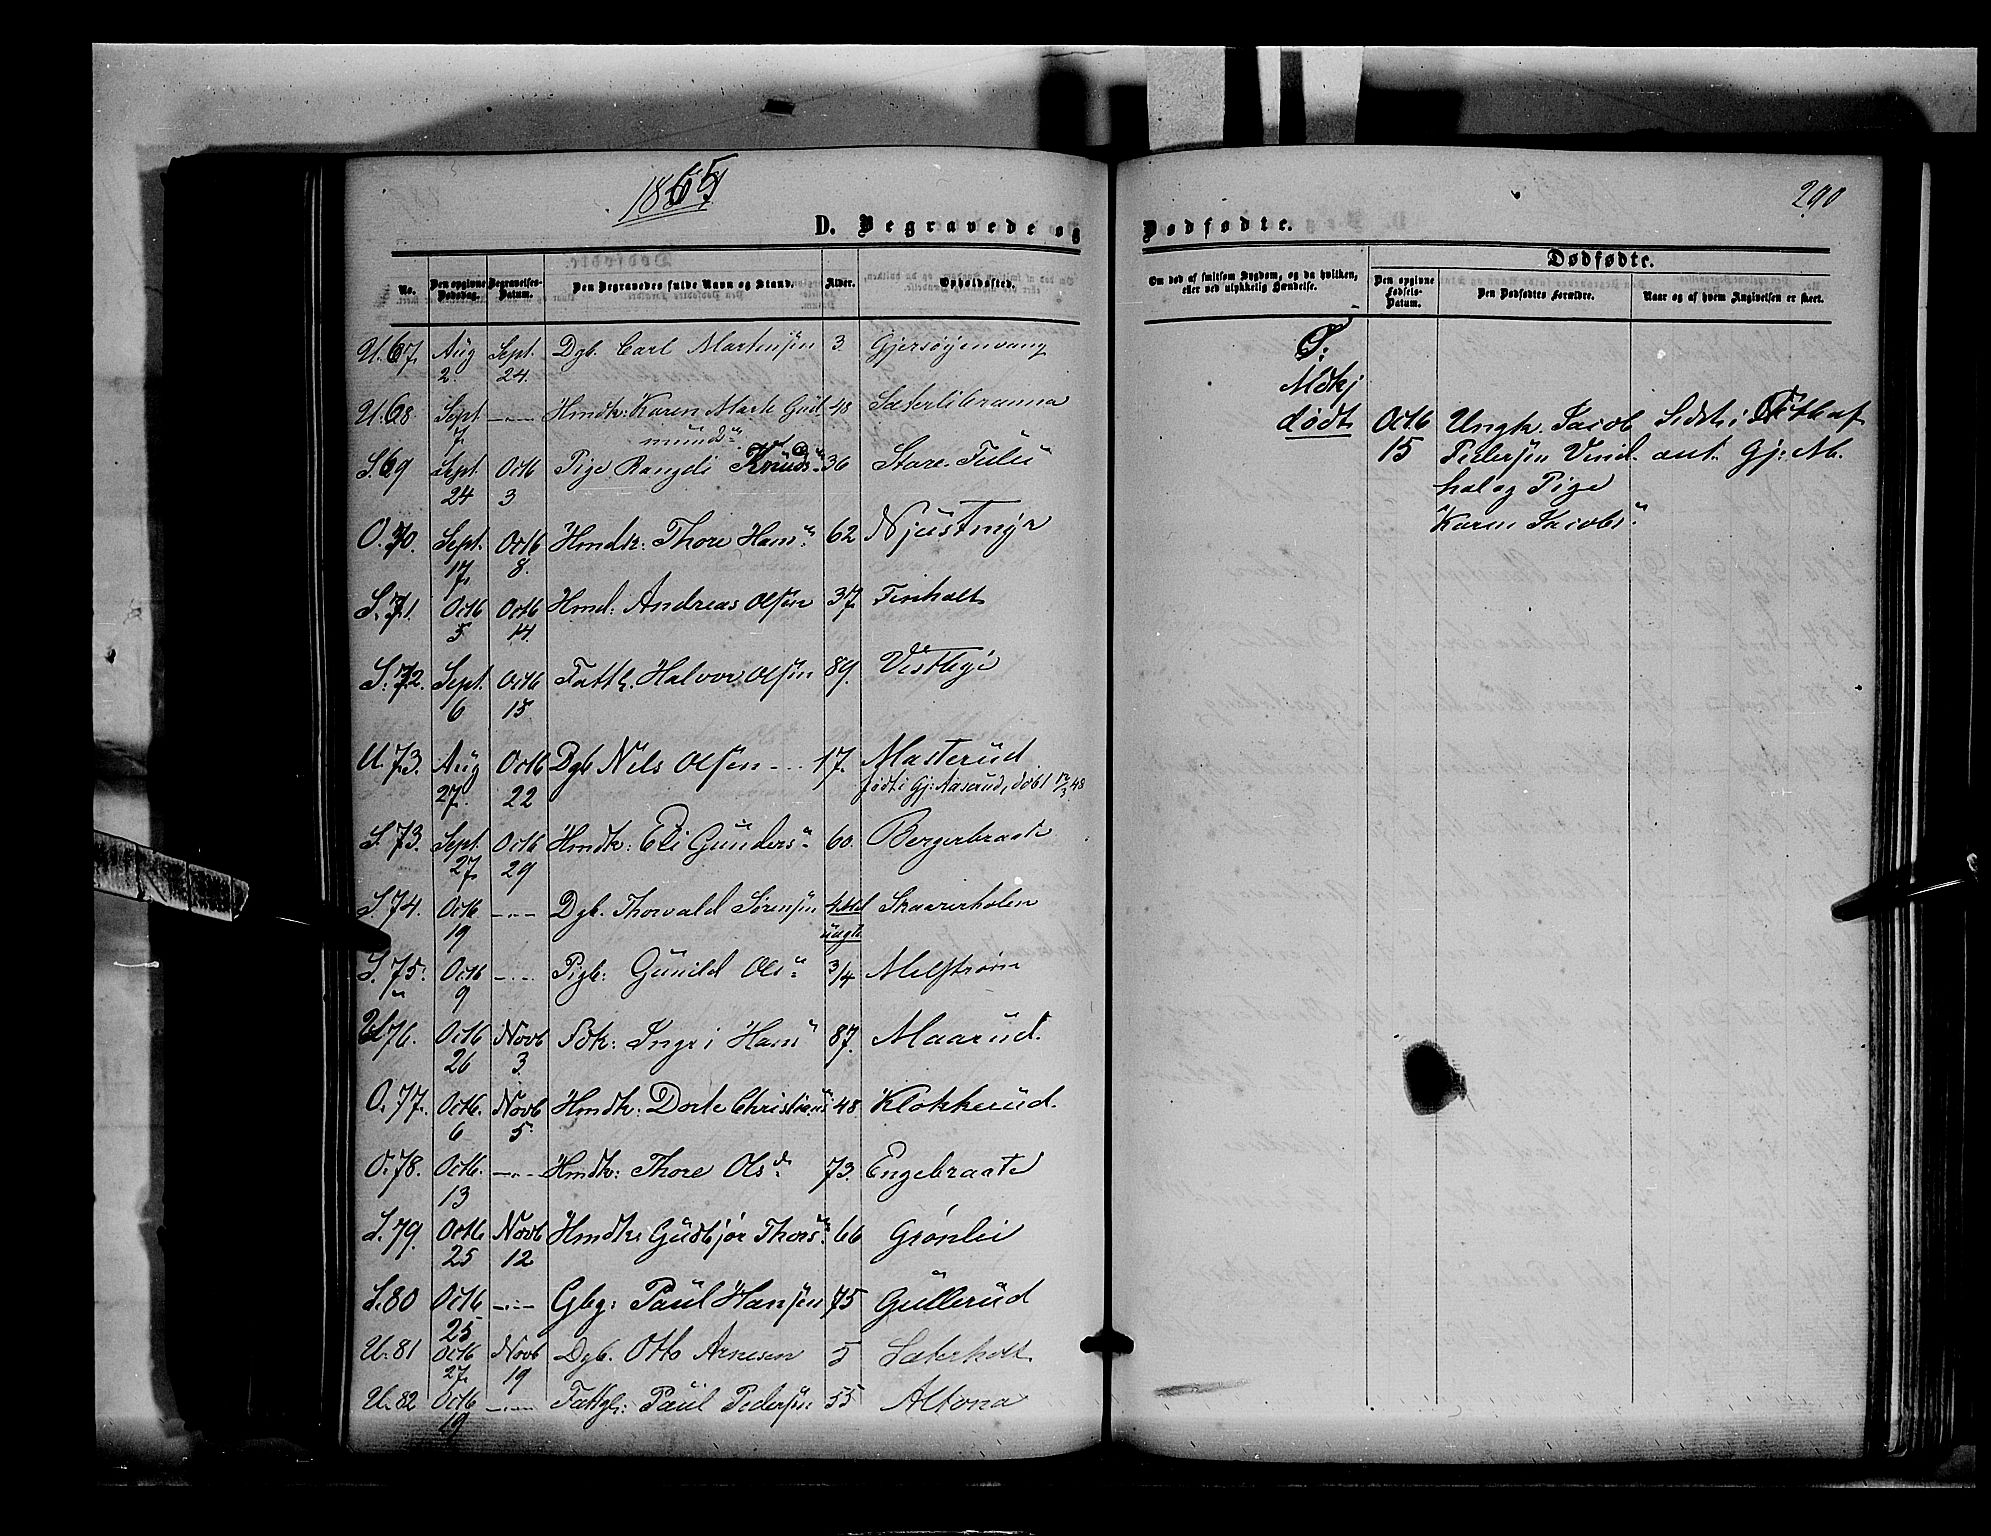 1865
290
D. Begravede og Dødfødte.
Dødfødte.
No. Den opgivne Dødsdag. Begravelses-Datum. Den Begravedes fulde Navn og Stand. Alder. Opholdssted. Om død af smitsom Sygdom, og da hvilken, eller ved ulykkelig Hændelse. Den opgivne Fødsels-Datum. Den Dødfødtes Forældre. Naar og af hvem Angivelsen er skeet.
U. 67. Aug 2. Sept. 24. Dgb. Carl Martinsen 3 Gjersøjenvang
U. 68 Sept 7. -"- Hmdk: Karen Marte Gud 48 Sæterlibranna
mundsn
S. 69 Sept. 24 Octb 3 Pige Rangdi Knuds 36 Store
O. 70. Sept. 17. Octb 8. Hmdk: Thore Hans 62 Njustmyr
S. 71. Octb 5 Octb 14. Hmd: Andreas Olsen 37 Finholt
S. 72. Sept. 6 Octb 15 Fattl. Halvor Olsen 89. Vestbye
U. 73. Aug 27. Octb 22 Dgb Nils Olsen 17. Masterud
født i Gj: Aaserud, døbt 12/3 48
S 73. Sept. 27 Octb 29 Hmdk: Eli Gunders 60. Bergerbraate
S. 74. Octb 19 -"- Dgb. Thorvald Sørensen Skaarerholen
S. 75. Octb 9 -"- Pigb: Gunild Ols 3/4 Melstrøm
U 76. Octb 26 Novb 3. Ingri Hans 87. Maarud.
O. 77. Octb. 6 Novb 5. Hmdk: Dorte Christians 48. Klokkerud.
O. 78. Octb. 13 -"- Hmdk: Thore Ols 73. Engebraate
S. 79. Octb. 25 Novb 12 Hmdk: Gudbjør Thors 66 Grønlie
S. 80 Octb 25 -"- Gbg: Paul Hansen 75 Gullerud
U. 81 Octb 27. Novb 19 Dgb. Otto Arnesen 5 Sæterholt.
U. 82 Octb 19 -"- Fattgl: Paul Pedersen 55 Altona
O:
Mdkj
dødt Octb Ungk. Jacob Sidst i
15 Pedersen Vind. ant. Gj: M.
hol og Pige
Karen Jacobs.